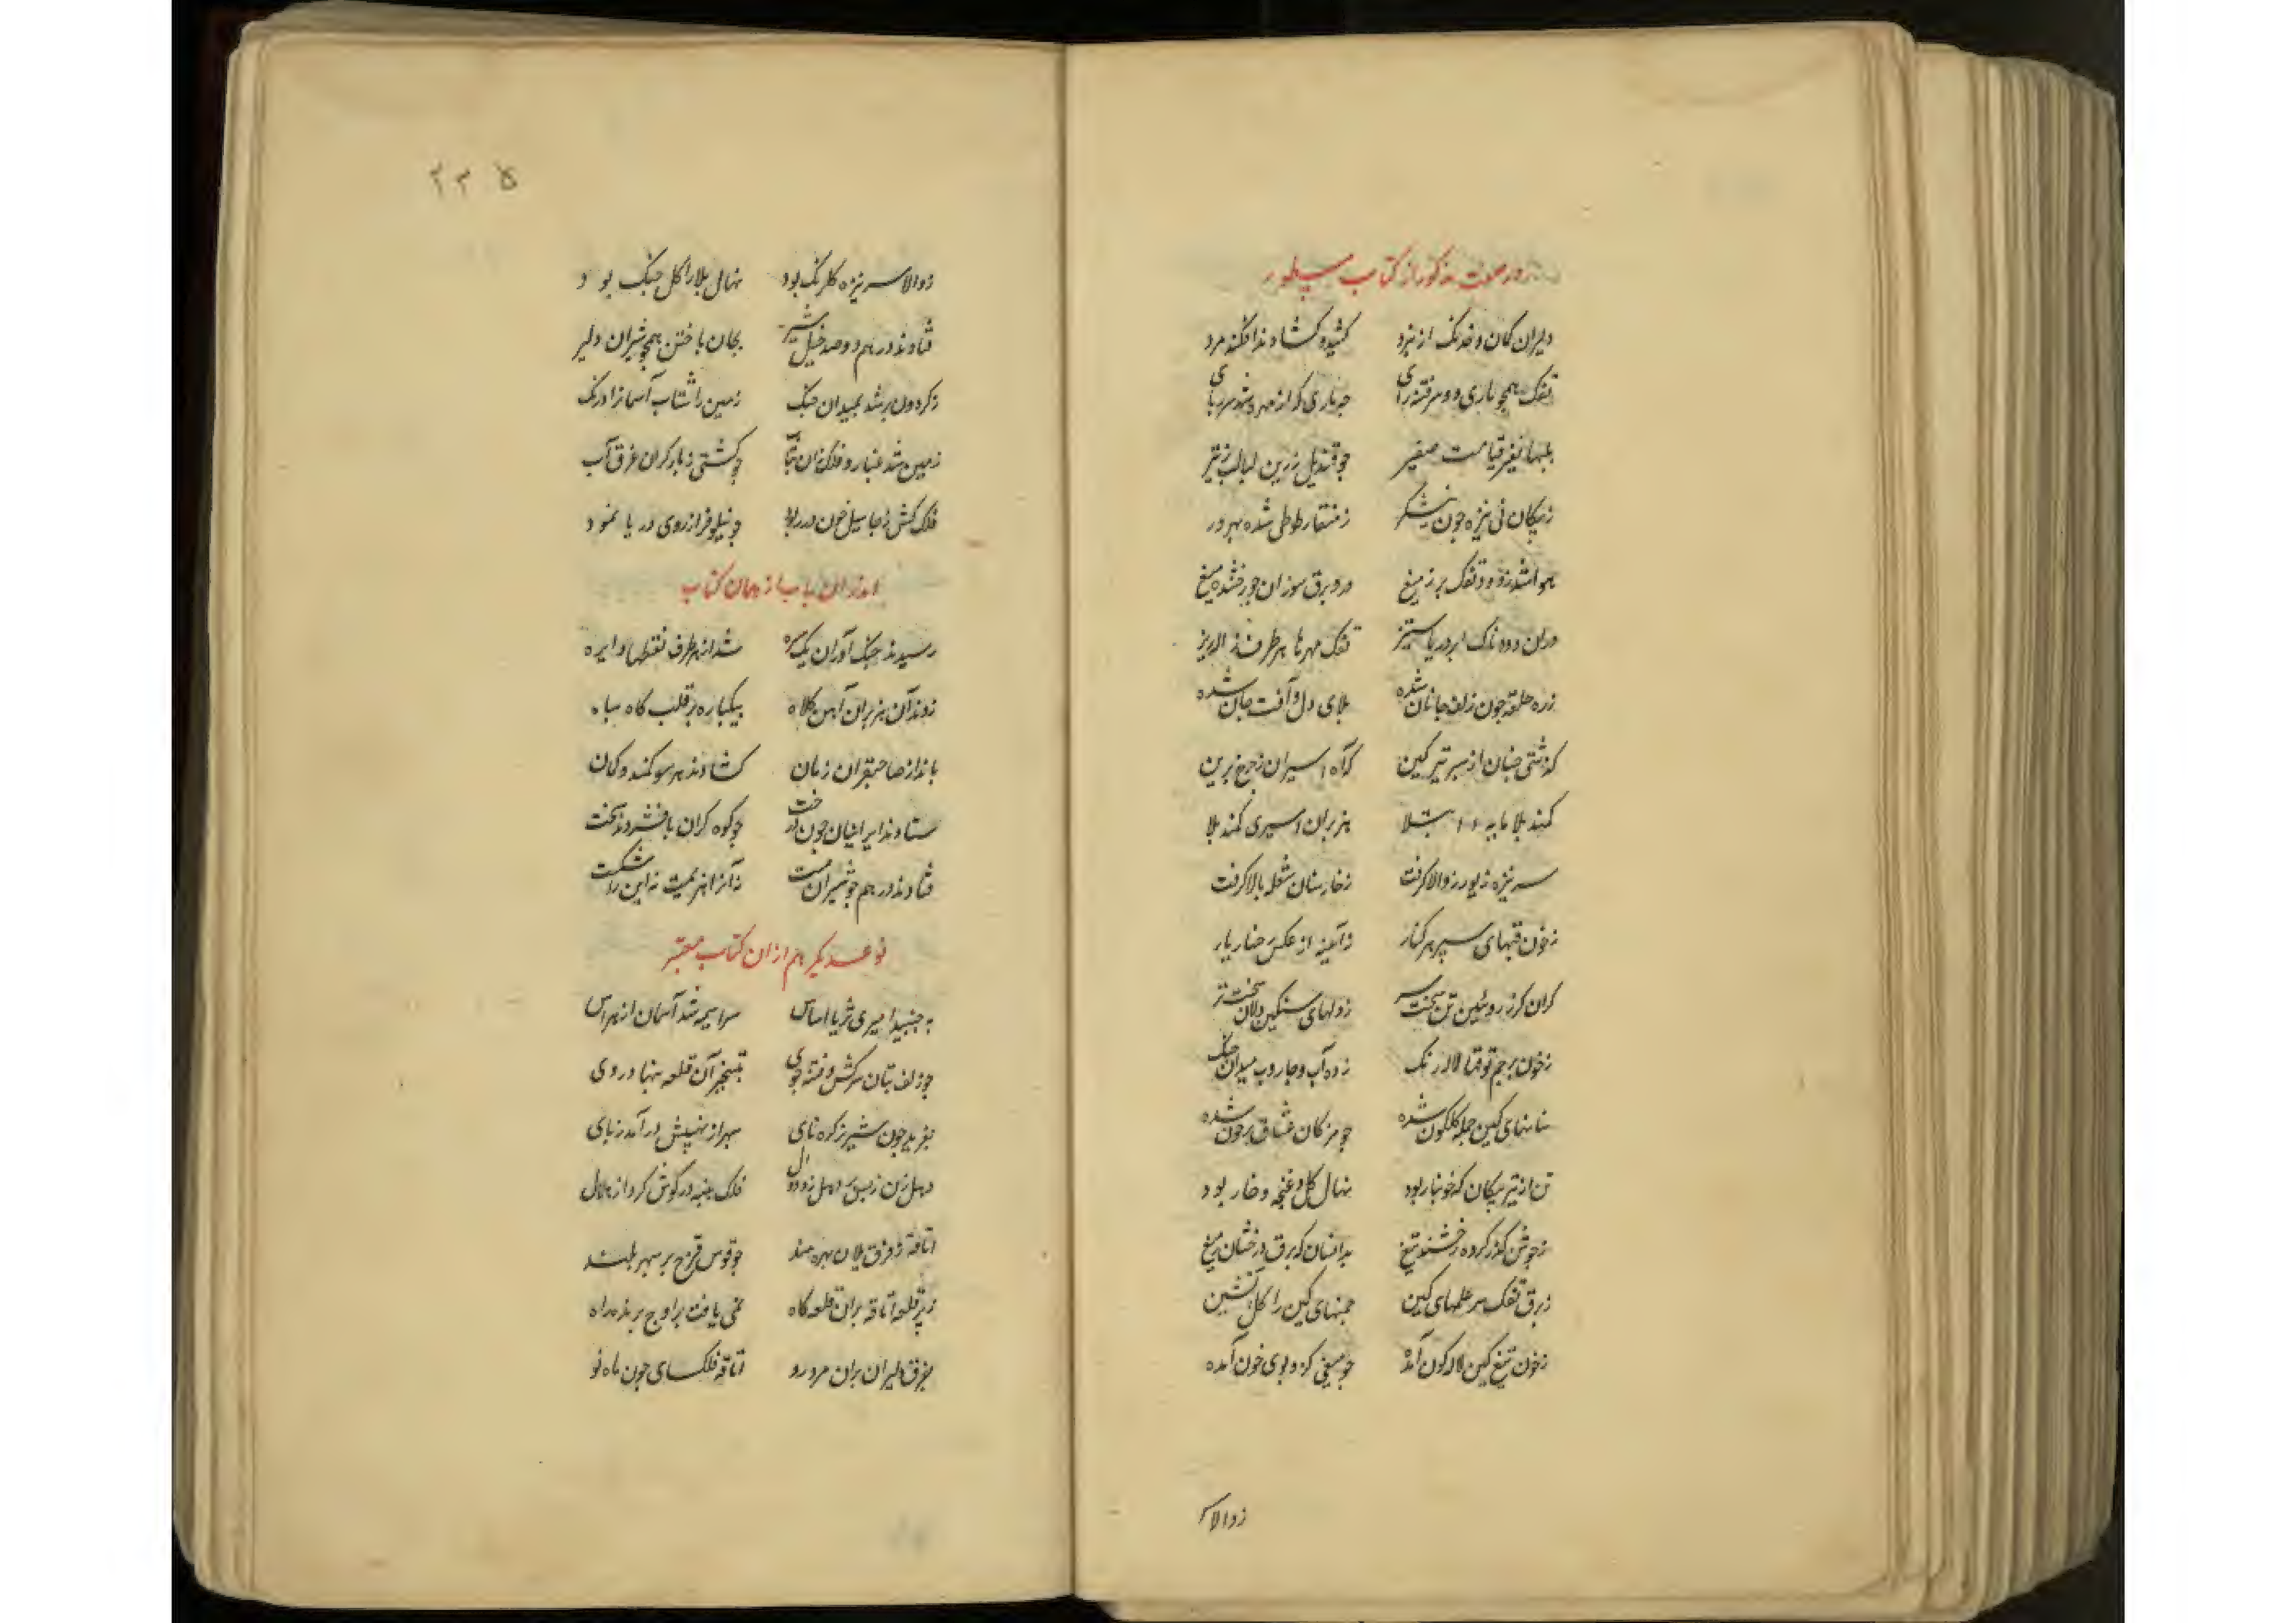 در صفت مذکور از کتاب مسطور
دلیران کمان و خدنک از نبرد کشیده کشادند افکند مرد
تفک همچو ماری دو سر فتنه رای
بلبها نفیر قیامت صفیر چو قندیل زرین لبالب ز تیر
ز پیکان نی نیزه چون نیشکر ز منقار طوطی شده بهره ور
هوا شد ز دود تفک پر ز میغ درو برق سوزان چو رخشنده تیغ
دران دودناک ابر دریا ستیز تفک مهرها هر طرف ژاله ریز
زره حلقه چون زلف جانان شده بلای دل و آفت جان شده
کذشتی چنان از سپر تیر کین که آه اسیران ز چرخ برین
کمند بلا مبتلا هزبران اسیری کمند بلا
سر نیزه زیور ز والا کرفت ز خار سنان شعله بالا کرفت
ز خون قبهای سپر هر کنار چو آیینه از عکس رخسار یار
کران کرز روئین تن سخت سر ز دلهای سنکین دلان سخت تر
ز خون پرچم توقها لاله رنک زده آب و جاروب میدان جنک
سنانهای کین جمله کلکون شده چو مژکان عشاق پر خون شده
تن از تیر پیکان که خونبار بود نهال کل و غنچه و خار بود
ز جوشن کذر کرده رخشنده تیغ بدانسان که برق درخشان ز میغ
ز برق تفک سر علمهای کین چمنهای کین را کل آتشین
ز خون تیغ کین لاله کون آمده چو میغی کزو بوی خون آمده
ز والا سر
۲۳۵
ز والا سر نیزه کلرنک بود نهال بلا را کل جنک بود
فتادند در هم دو صد خیل شیر بجان باختن همچو شیران دلیر
ز کردون بر شد بمیدان جنک زمین را شتاب آسمانرا درنک
زمین شد غبار و فلک زان بتاب چو کشتی ز بار کران غرق آب
فلک کش ز جا سیل خون در ربود چو نیلوفر از روی دریا نمود
اندران باب از همان کتاب
رسیدند جنک آوران یکسره شد از هر طرف نقطها دایره
زدند آن هزبران آهن کلاه بیکباره بر قلب کاه سپاه
بانداز صاحبقران زمان کشادند هر سو کمند و کمان
ستادند ایرانیان چون درخت چو کوه کران پا فشردند سخت
فتادند در هم چو شیران مست نه آنرا هزیمت نه این را شکست
نوعدیکر هم از ان کتاب معتبر
به جنبید امیری ثریا اساس سراسیمه شد آسمان از هراس
چو زلف بتان سرکش و فتنه جوی بتسخیر آن قلعه بنهاد روی
بغرید چون شیر نر کره نای سپهر از نهیبش در آمد ز پای
دهل زن ز بس دهل زد دوال فلک پنبه در کوش کرد از هلال
اتاقه ز فرق یلان بهره مند چو قوس قزح بر سپهر بلند
ز پر قلعه اتاقه بران قلعه کاه نمی یافت بر اوج بر بنده راه
بفرق دلیران بران مرد رو اتاقه فلکسای چون ماه نو